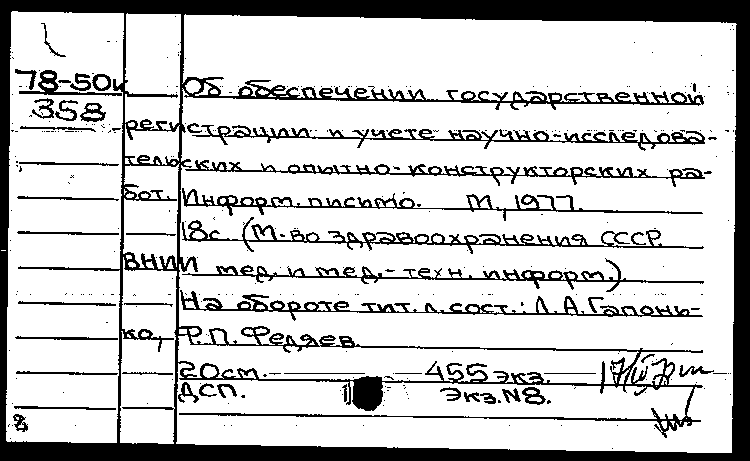 78-50к Об обеспечении государственной
358
регистрации и учете научно-исследова-
тельских и опытно-конструкторских ра-
бот. Информ. письмо. М., 1977.
18с. (М-во здравоохранения СССР.
ВНИИ мед. и мед.-техн. информ.)
На обороте тит. л. сост.: Л.А. Гапонь-
ко, Ф.П. Федяев.
20см. 455 экз.
ДСП. Экз. N8.
8